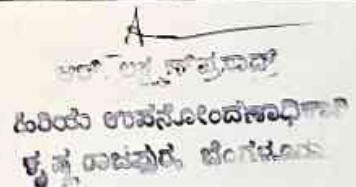 ಆರ್. ಲಕ್ಷ್ಮಣ್ ಪ್ರಸಾದ್
ಹಿರಿಯ ಉಪನೋಂದಣಾಧಿಕಾರಿ
ಕೃಷ್ಣರಾಜಪುರ, ಬೆಂಗಳೂರು